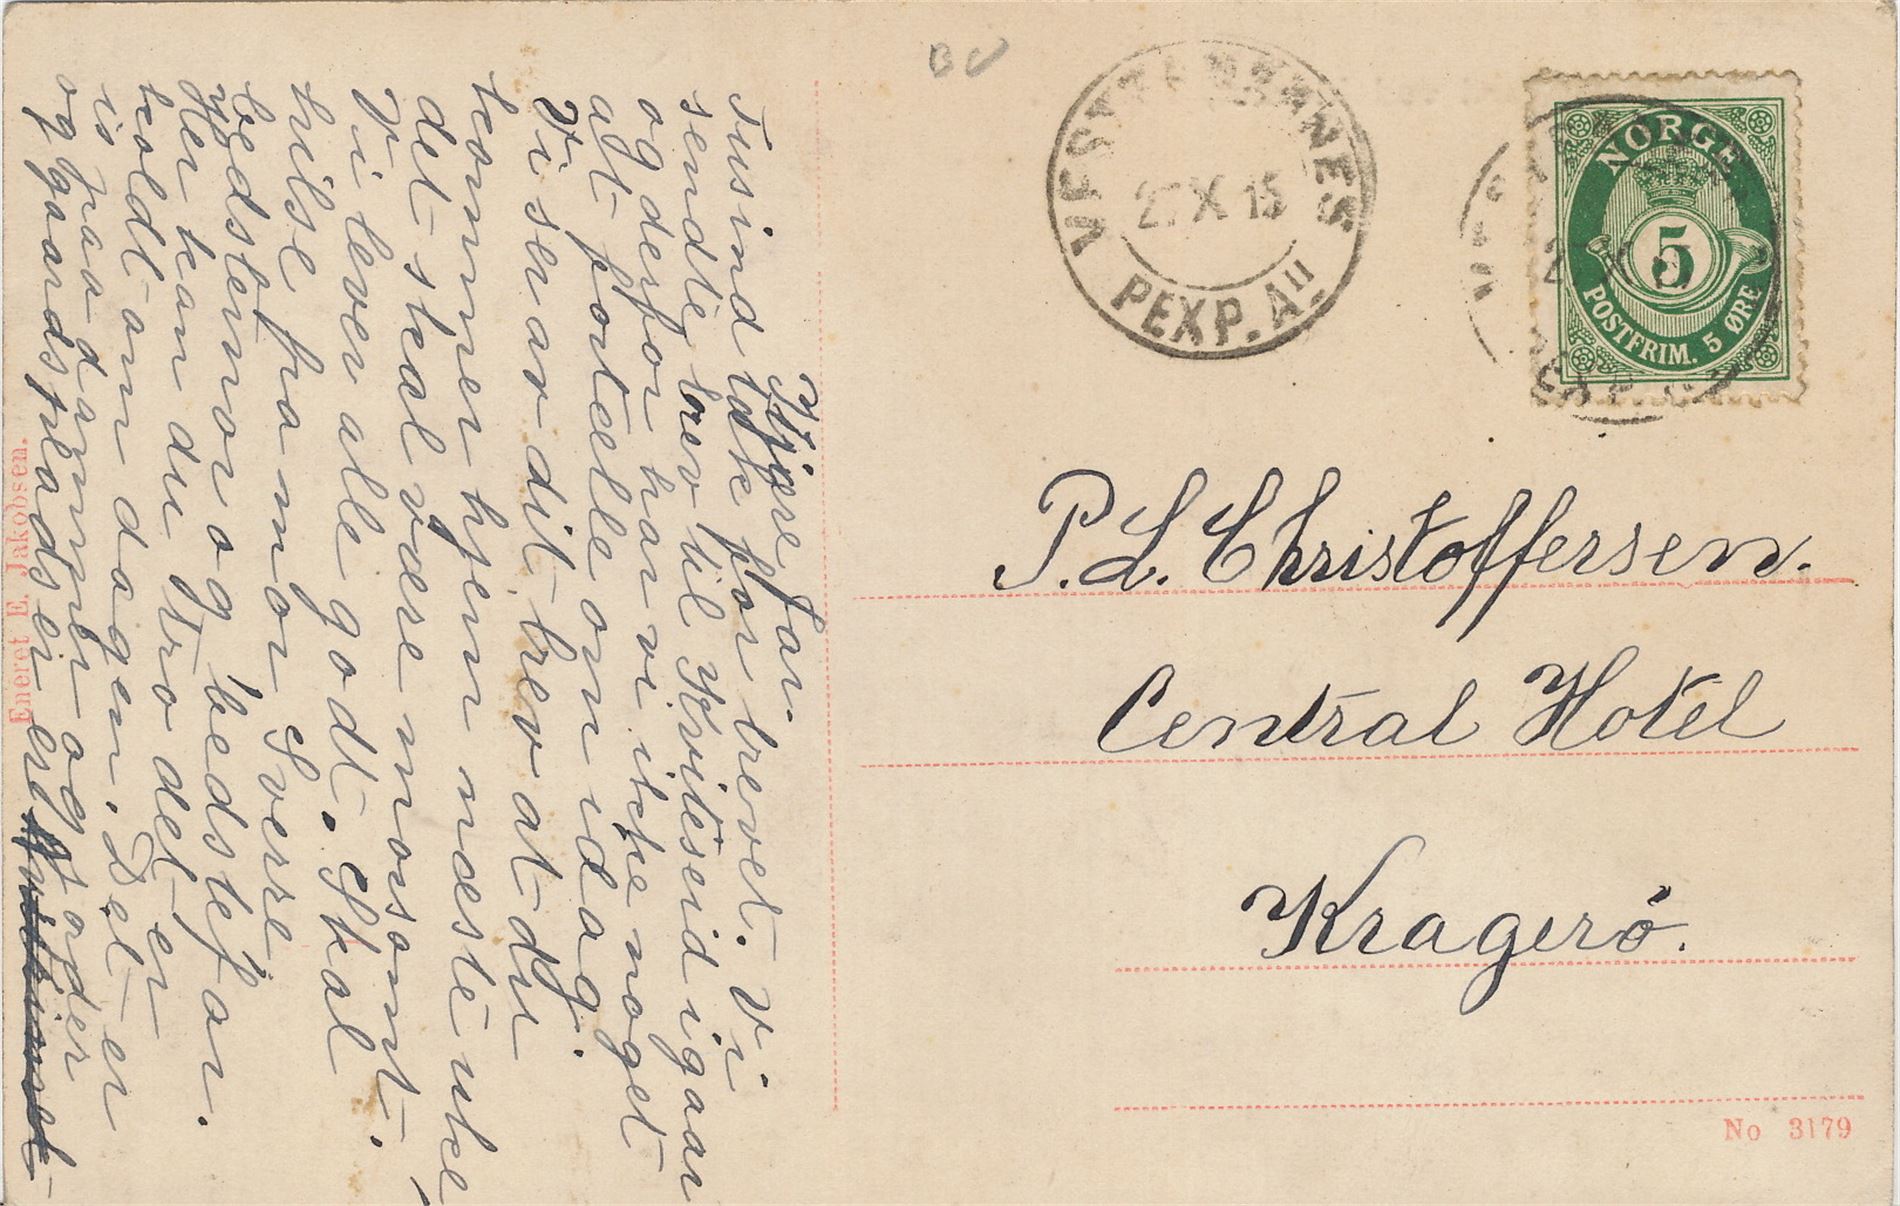 Kjære far.
Tusind takk for brevet. Vi
sendte brev til Kviteseid igaar
og derfor har vi ikke noget
at fortælle om idag.
Vi ser av dit brev at du
kommer hjem næste uke
det skal være morsomt.
Vi lever alle godt. Skal
hilse fra mor Sverre
bedstemor og bedstefar.
Her kan du tro det er
koldt om dagen. Det er
is paa dammen og
og gaardspladsen er
P. L. Christoffersen.
Central Hotel
Kragerö.
PEXP. A
X 15
NORGE
5
POSTFRIM. 5 ØRE
Eneret E. Jakobsen.
No 3179